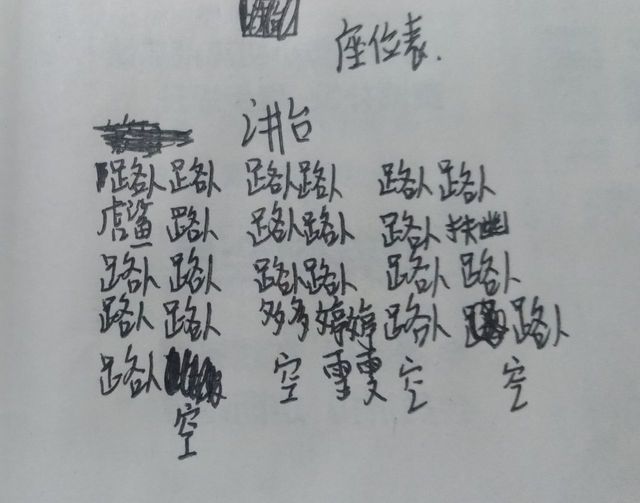 座位表.
讲台
路人 路人 路人 路人 路人 路人
虎鲨 路人 路人 路人 路人 扶幽
路人 路人 路人 路人 路人 路人
路人 路人 多多 婷婷 路人 路人
路人 空 空
空 空